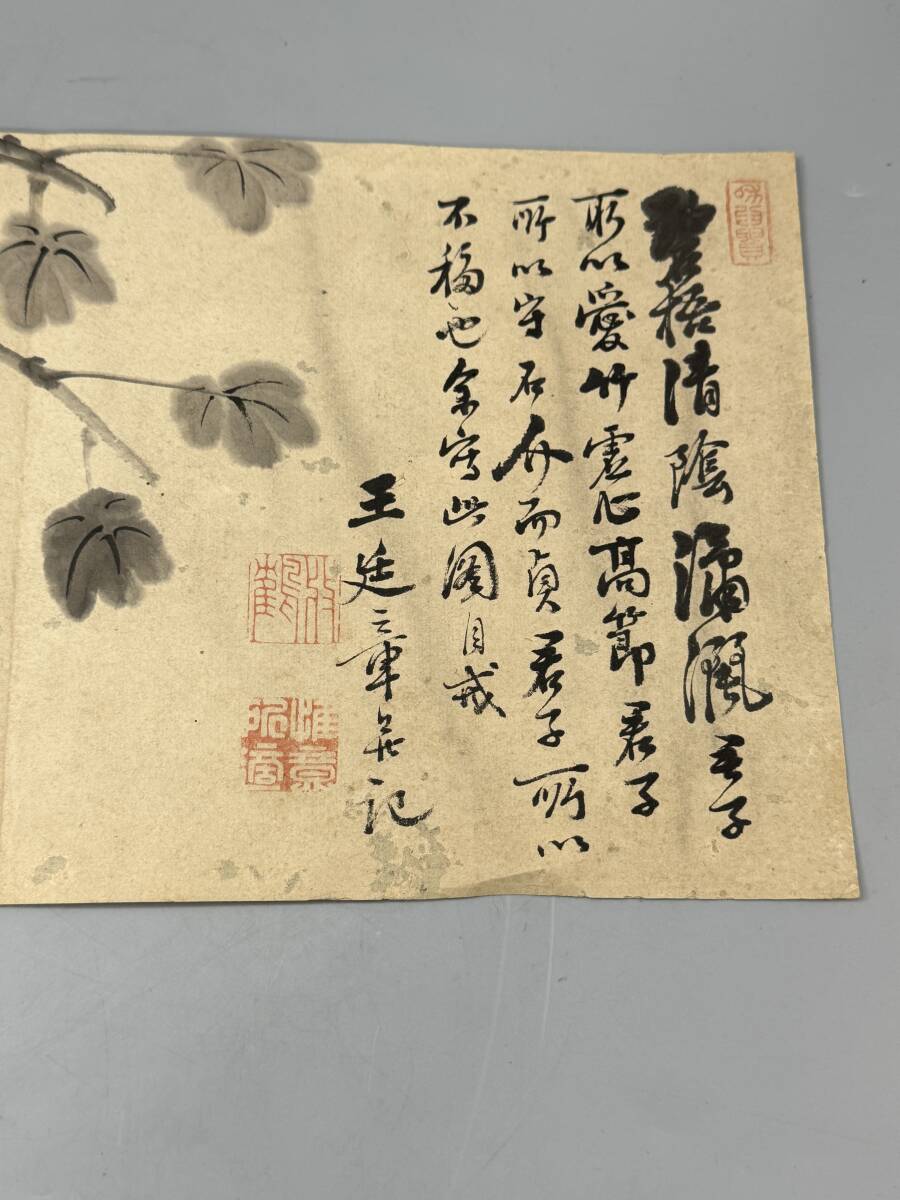 梧清陰君子
所以愛竹虛心高節君子
所以守石介而貞君子所以
不移也余寫此圖自戒
王廷章並記
惟意所適